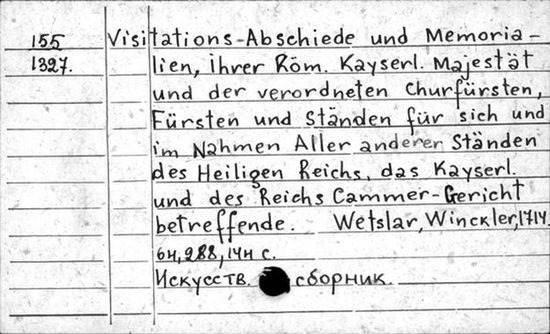 155
1327.
Visitations-Abschiede und Memoria-
lien, ihrer Röm. Kayserl. Majestät
und der verordneten Churfürsten,
Fürsten und Ständen für sich und
im Nahmen Aller anderer Ständen
des Heiligen Reichs, das Kayserl.
und des Reichs Cammer-Gericht
betreffende. Wetslar, Winckler, 1714.
6н, 288, 14н с.
Искусств. сборник.